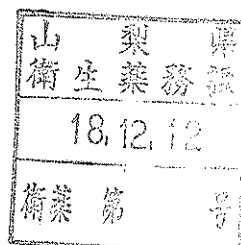 山梨県
衛生薬務課
18.12.12
衛薬 第 号